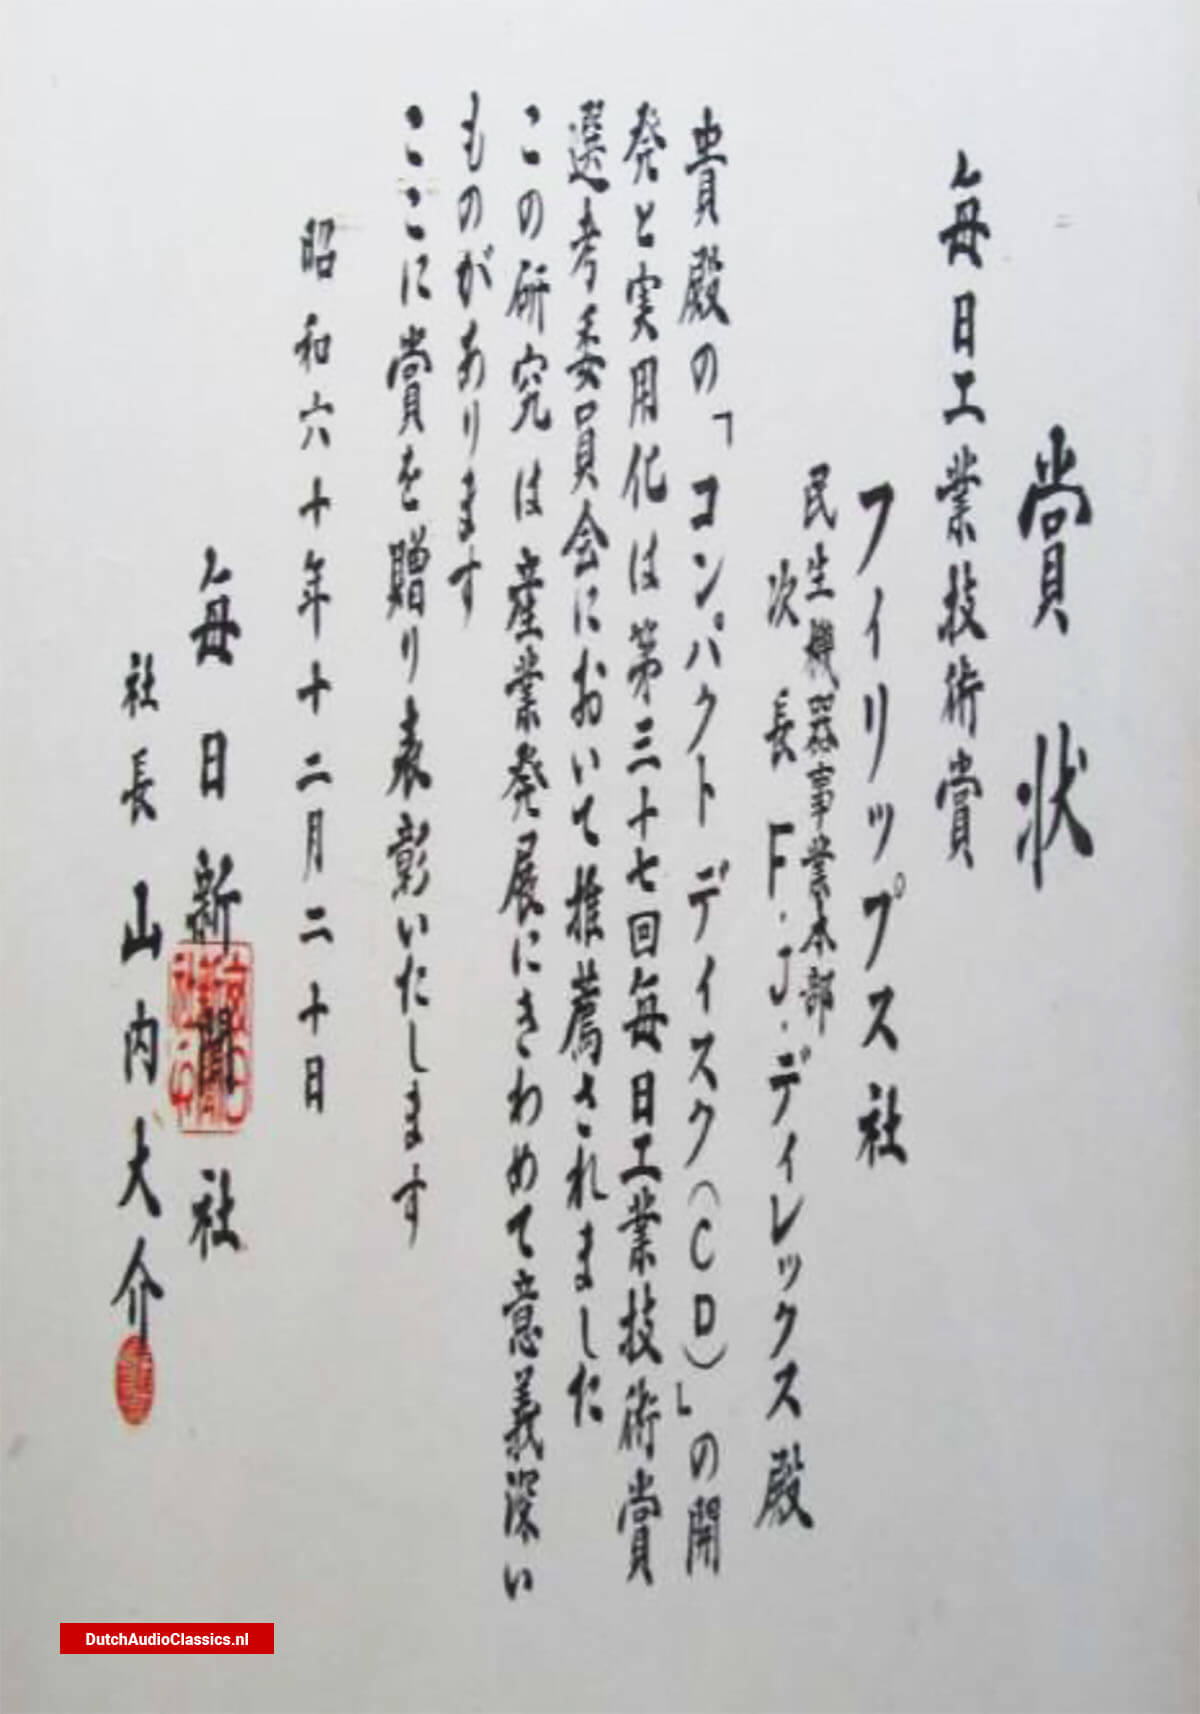 賞状
毎日工業技術賞
フィリップス社
民生機器事業本部
次長 F・J・ディレックス殿
貴殿の「コンパクトデイスク(CD)」の開
発と実用化は第三十七回毎日工業技術賞
選考委員会において推薦されました
この研究は産業発展にきわめて意義深い
ものがあります
ここに賞を贈り表彰いたします
昭和六十年十二月二十日
毎日新聞社
社長 山内大介
DutchAudioClassics.nl